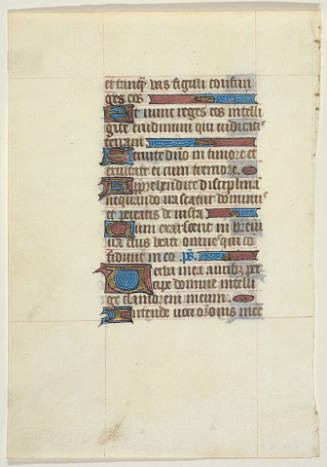 et tanq̃ vas figuli confrin
ges eos
Et nunc reges intelli
gite erudimini qui iudicatis
terram
Servite dño in timore et
exultate ei cum tremore
Apprehendite disciplinā
nequando irascatur dominus
et pereatis de via iusta
Cum exarserit in brevi
ira eius beati omnes qui co
fidunt in eo ps.
Verba mea auribus per
cipe domine intelli
ge clamorem meum
Intende voci orõnis mee